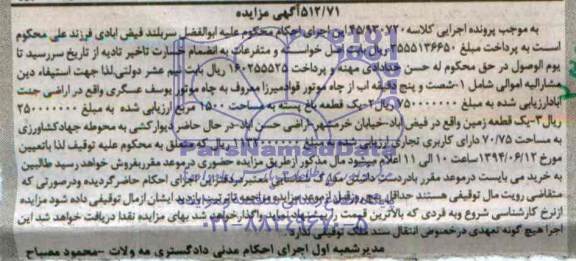 ۵۱۲/۷۱آگهی مزایده
به موجب پرونده اجرایی کلاسه ۴۵/۹۳۰۷۲۰ این اجرای احکام محکوم علیه ابوالفضل سربلند فیض ابادی فرزند علی محکوم
است به پرداخت مبلغ ۳۵۵۵۱۳۶۶۵۰ ریال بابت اصل خواسته و متفرعات به انضمام خسارت تاخیر تادیه از تاریخ سررسید تا
یوم الوصول در حق محکوم له حسن خدادادی مهنه و پرداخت ۱۶۰۲۵۵۵۲۵ ریال بابت نیم عشر دولتی.لذا جهت استیفاء دین
مشارالیه اموالی شامل ۱-شصت و پنج دقیقه اب از چاه موتور قوامدمیرزا معروف به چاه موتور یوسف عسگری واقع در اراضی جنت
آبادارزیابی شده به مبلغ ۷۵۰۰۰۰۰۰۰ ریال۲-یک قطعه باغ پسته به مساحت ۱۵۰۰ مربع ارزیابی شده به مبلغ ۲۵۰۰۰۰۰۰۰
ریال۳-یک قطعه زمین واقع در فیض آباد-خیابان خرمشهر-اراضی حسن آباد-در حال حاضر دیوارکشی به محوطه جهادکشاورزی
به مساحت ۷۰/۷۵ دارای کاربری تجاری ارزیابی شده به مبلغ ریال که متعلق به محکوم علیه توقیف لذا باتعیین
مورخ ۱۳۹۴/۰۶/۱۲ ساعت ۱۰ الی ۱۱ اعلام میشود مال مذکور ازطریق مزایده حضوری در موعد مقرربفروش خواهد رسید طالبین
به خرید می بایست درموعد مقرر بادردست داشتن کارت شناسایی معتبرمردفتراین اجرای احکام حاضرگردیده ودرصورتی که
متقاضی رویت مال توقیفی هستند حداقل پنج روزقبل ازموعد مزایده مراجعه تاترتیب بازدید ایشان ازمال توقیفی داده شود مزایده
ازنرخ کارشناسی شروع وبه فردی که بالاترین قیمت را پیشنهاد نماید واگذارخواهد شد بهای مزایده نقدا دریافت خواهد شد این
اجرا هیچ گونه تعهدی درخصوص انتقال سند ملک توقیفی ندارد.
مدیرشعبه اول اجرای احکام مدنی دادگستری مه ولات -محمود مصباح
ParsNamadData
۰۲۱-۸۸۳۴۹۶۷۰-۵